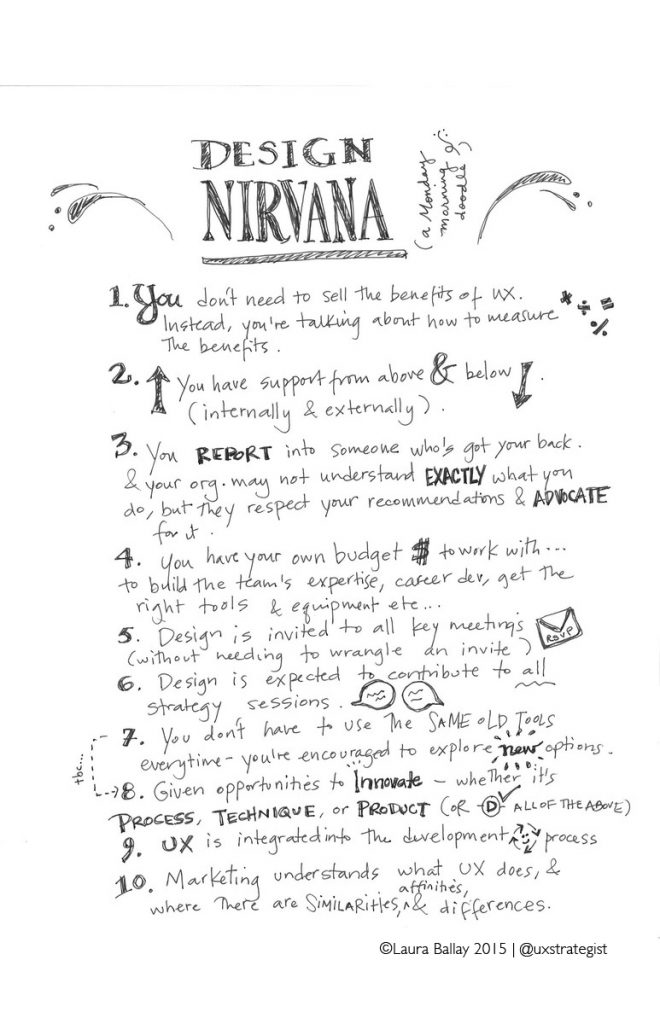 DESIGN
NIRVANA
(a Monday
morning
doodle)
1. You don't need to sell the benefits of UX.
Instead, you're talking about how to measure
the benefits.
* ÷ = %
2. ↑ You have support from above & below ↓.
(internally & externally).
3. You REPORT into someone who's got your back.
& your org. may not understand EXACTLY what you
do, but they respect your recommendations & ADVOCATE
for it.
4. You have your own budget $ to work with...
to build the team's expertise, career dev, get the
right tools & equipment etc...
5. Design is invited to all key meetings
(without needing to wrangle an invite)
RSVP
6. Design is expected to contribute to all
strategy sessions.
7. You don't have to use the SAME OLD TOOLS
everytime - you're encouraged to explore new options.
tbc...
8. Given opportunities to Innovate - whether it's
PROCESS, TECHNIQUE, or PRODUCT (OR -D- ALL OF THE ABOVE)
9. UX is integrated into the development process
10. Marketing understands what UX does, &
where there are SIMILARITIES, affinities, & differences.
©Laura Ballay 2015 | @uxstrategist